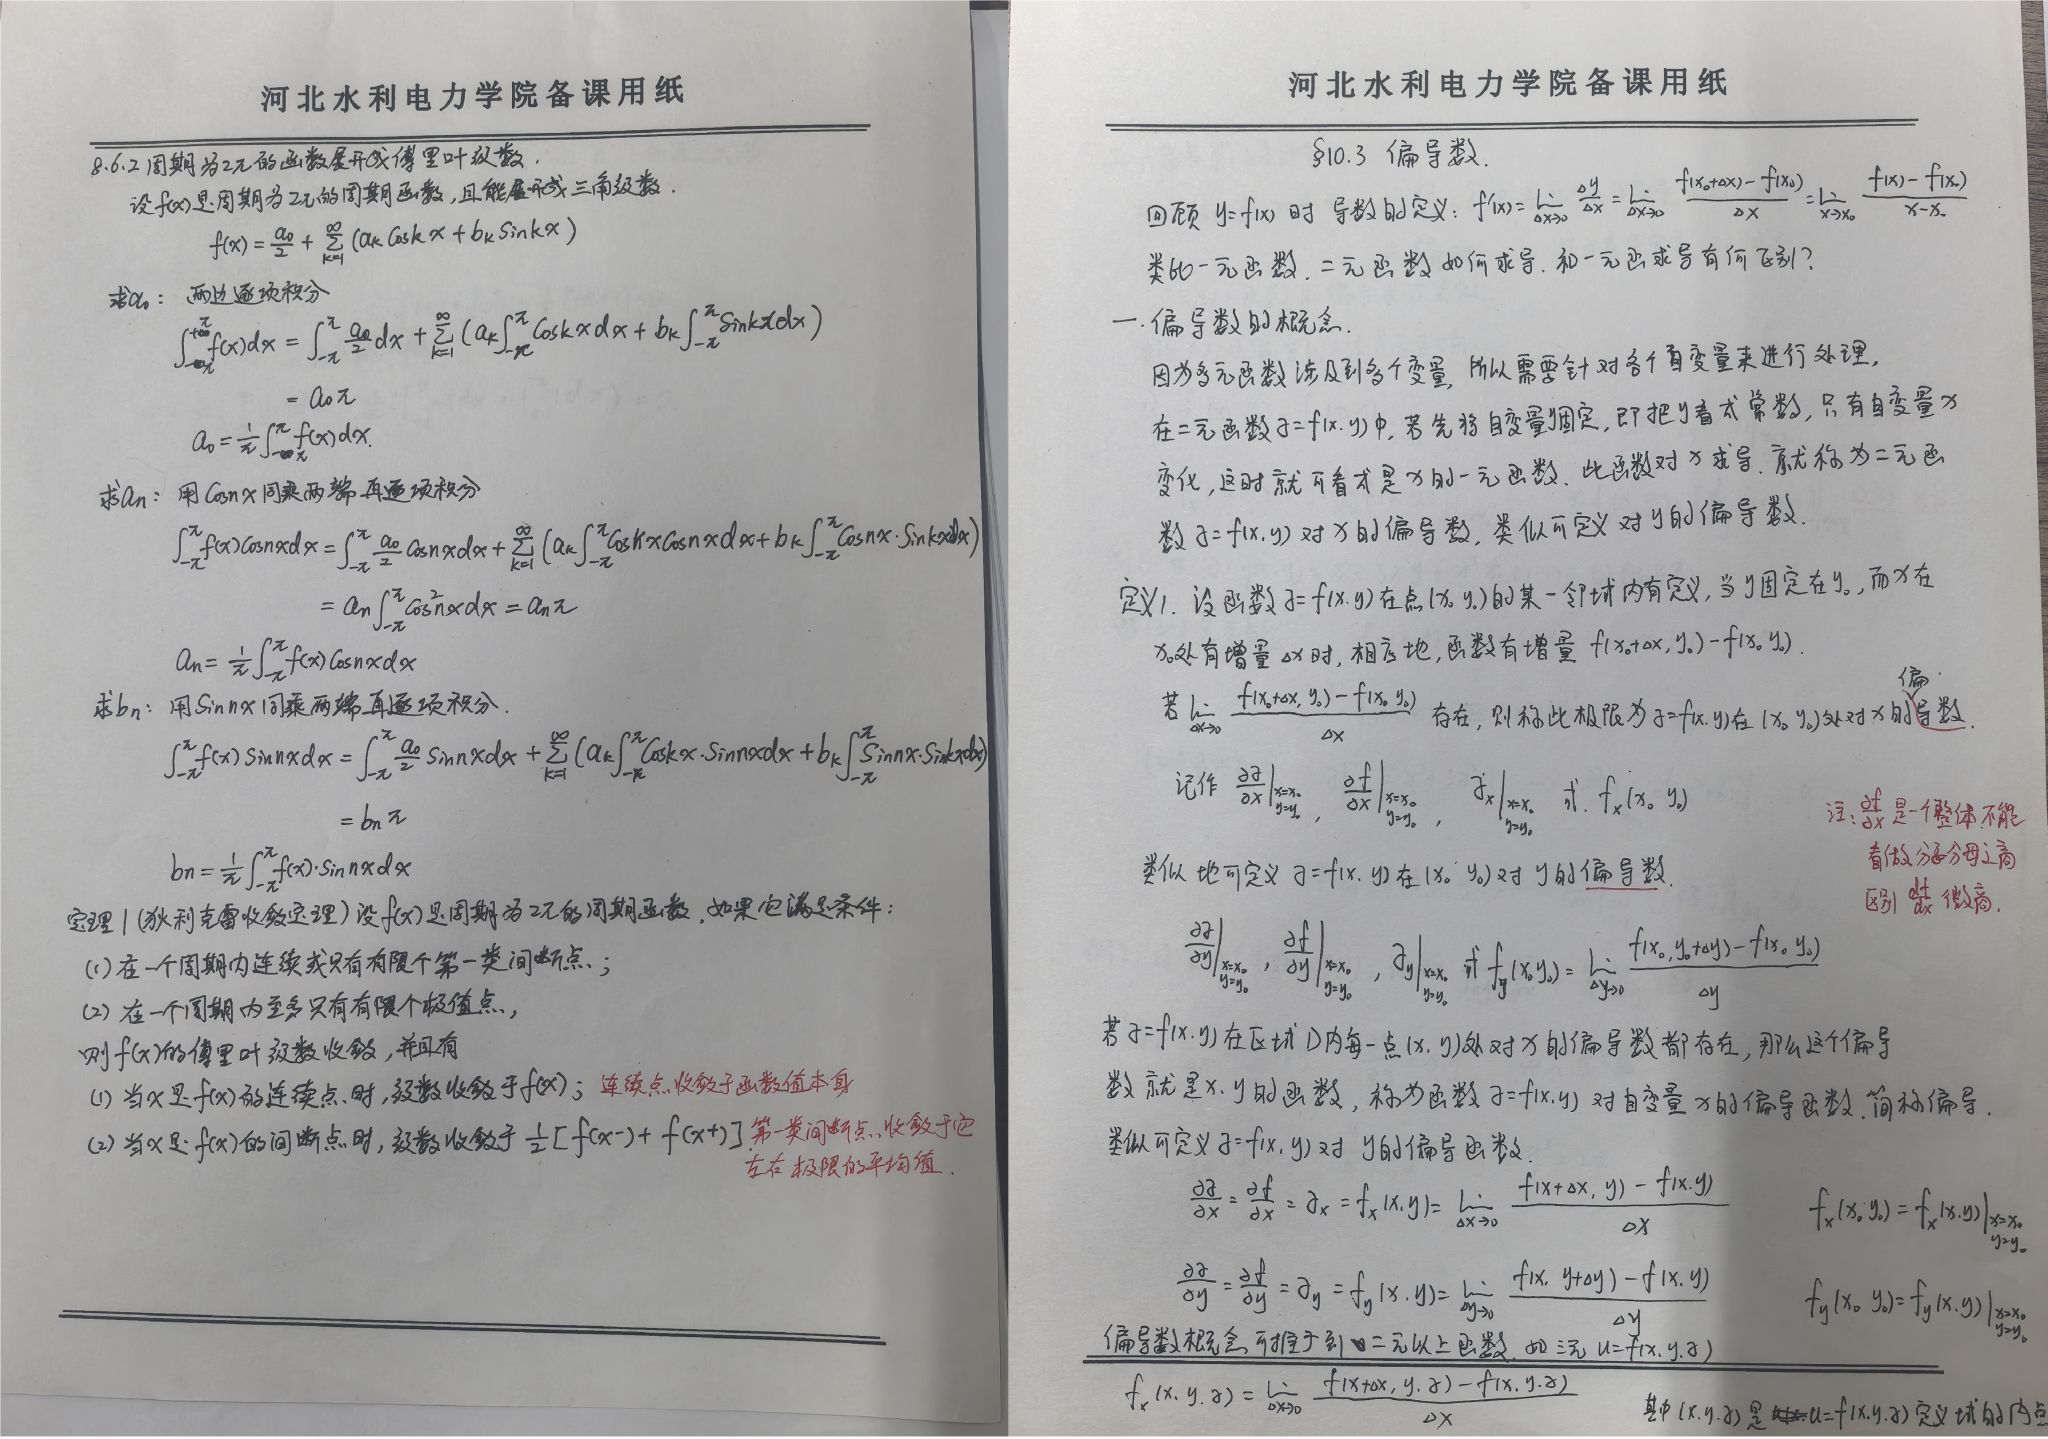 河北水利电力学院备课用纸
8.6.2 周期为2π的函数展开成傅里叶级数.
设f(x)是周期为2π的周期函数,且能展开成三角级数.
f(x)=a₀/2+∑_{k=1}^{∞}(aₖCoskx+bₖSinkx)
求a₀: 两边逐项积分
∫_{-π}^{π}f(x)dx=∫_{-π}^{π}a₀/2dx+∑_{k=1}^{∞}(aₖ∫_{-π}^{π}Coskxdx+bₖ∫_{-π}^{π}Sinkxdx)
=a₀π
a₀=1/π∫_{-π}^{π}f(x)dx.
求aₙ: 用Cosnx同乘两端再逐项积分
∫_{-π}^{π}f(x)Cosnxdx=∫_{-π}^{π}a₀/2Cosnxdx+∑_{k=1}^{∞}(aₖ∫_{-π}^{π}CoskxCosnxdx+bₖ∫_{-π}^{π}Cosnx·Sinkxdx)
=aₙ∫_{-π}^{π}Cos²nxdx=aₙπ
aₙ=1/π∫_{-π}^{π}f(x)Cosnxdx
求bₙ: 用Sinnx同乘两端再逐项积分.
∫_{-π}^{π}f(x)Sinnxdx=∫_{-π}^{π}a₀/2Sinnxdx+∑_{k=1}^{∞}(aₖ∫_{-π}^{π}Coskx·Sinnxdx+bₖ∫_{-π}^{π}Sinnx·Sinkxdx)
=bₙπ
bₙ=1/π∫_{-π}^{π}f(x)·Sinnxdx
定理1(狄利克雷收敛定理)设f(x)是周期为2π的周期函数,如果它满足条件:
(1)在一个周期内连续或只有有限个第一类间断点;
(2)在一个周期内至多只有有限个极值点,
则f(x)的傅里叶级数收敛,并且有
(1)当x是f(x)的连续点时,级数收敛于f(x); 连续点收敛于函数值本身
(2)当x是f(x)的间断点时,级数收敛于1/2[f(x-)+f(x+)]. 第一类间断点收敛于它
左右极限的平均值.
河北水利电力学院备课用纸
§10.3 偏导数.
回顾y=f(x)时导数的定义: f'(x)=lim_{Δx→0}Δy/Δx=lim_{Δx→0}(f(x₀+Δx)-f(x₀))/Δx=lim_{x→x₀}(f(x)-f(x₀))/(x-x₀)
类比一元函数.二元函数如何求导.和一元函求导有何区别?
一.偏导数的概念.
因为多元函数涉及到多个变量,所以需要针对各个自变量来进行处理.
在二元函数z=f(x.y)中,若先将自变量y固定,即把y看成常数,只有自变量x
变化,这时就可看成是x的一元函数.此函数对x求导.就称为二元函
数z=f(x.y)对x的偏导数,类似可定义对y的偏导数.
定义1. 设函数z=f(x.y)在点(x₀ y₀)的某一邻域内有定义,当y固定在y₀,而x在
x₀处有增量Δx时,相应地,函数有增量 f(x₀+Δx,y₀)-f(x₀ y₀).
若lim_{Δx→0}(f(x₀+Δx,y₀)-f(x₀ y₀))/Δx 存在,则称此极限为z=f(x.y)在(x₀ y₀)处对x的偏导数.
记作 ∂z/∂x|_{x=x₀ y=y₀}, ∂f/∂x|_{x=x₀ y=y₀}, zₓ|_{x=x₀ y=y₀} 或. fₓ(x₀ y₀)
注:∂f/∂x是一个整体,不能
看做分子分母之商
区别 df/dx 微商.
类似地可定义z=f(x.y)在(x₀ y₀)对y的偏导数.
∂z/∂y|_{x=x₀ y=y₀}, ∂f/∂y|_{x=x₀ y=y₀}, z_y|_{x=x₀ y=y₀} 或 f_y(x₀y₀)=lim_{Δy→0}(f(x₀,y₀+Δy)-f(x₀ y₀))/Δy
若z=f(x.y)在区域D内每一点(x.y)处对x的偏导数都存在,那么这个偏导
数就是x.y的函数,称为函数z=f(x.y)对自变量x的偏导函数.简称偏导.
类似可定义z=f(x.y)对y的偏导函数.
∂z/∂x=∂f/∂x=zₓ=fₓ(x.y)=lim_{Δx→0}(f(x+Δx,y)-f(x.y))/Δx fₓ(x₀ y₀)=fₓ(x.y)|_{x=x₀ y=y₀}
∂z/∂y=∂f/∂y=z_y=f_y(x.y)=lim_{Δy→0}(f(x.y+Δy)-f(x.y))/Δy f_y(x₀ y₀)=f_y(x.y)|_{x=x₀ y=y₀}
偏导数概念可推广到二元以上函数.如三元 u=f(x.y.z)
fₓ(x.y.z)=lim_{Δx→0}(f(x+Δx,y.z)-f(x.y.z))/Δx 其中(x.y.z)是u=f(x.y.z)定义域的内点